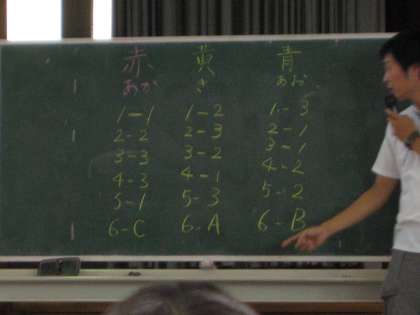 赤 黄 青
あか き あお
1-1 1-2 1-3
2-2 2-3 2-1
3-3 3-2 3-1
4-3 4-1 4-2
5-1 5-3 5-2
6-C 6-A 6-B